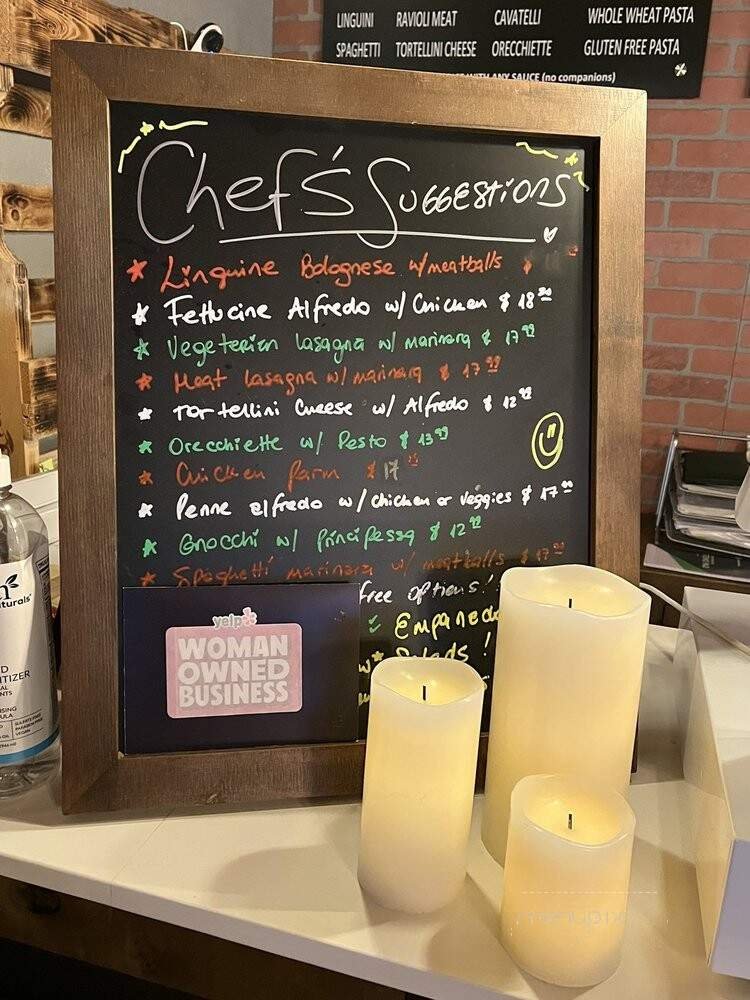 LINGUINI RAVIOLI MEAT CAVATELLI WHOLE WHEAT PASTA
SPAGHETTI TORTELLINI CHEESE ORECCHIETTE GLUTEN FREE PASTA
WITH ANY SAUCE (no companions)
Chef's Suggestions
Linguine Bolognese w/meatballs $
Fettucine Alfredo w/ Chicken $ 18
Vegeterian lasagna w/ marinara $ 17 99
Meat lasagna w/ marinara $ 17 99
Tortellini Cheese w/ Alfredo $ 12 99
Orecchiette w/ Pesto $ 13 99
Chicken Parm $ 17
Penne alfredo w/ chicken or veggies $ 17 99
Gnocchi w/ Principessa $ 12 99
Spaghetti marinara w/ meatballs $ 17 99
free options!
Empanada
Salads !
yelp
WOMAN
OWNED
BUSINESS
naturals
menupix